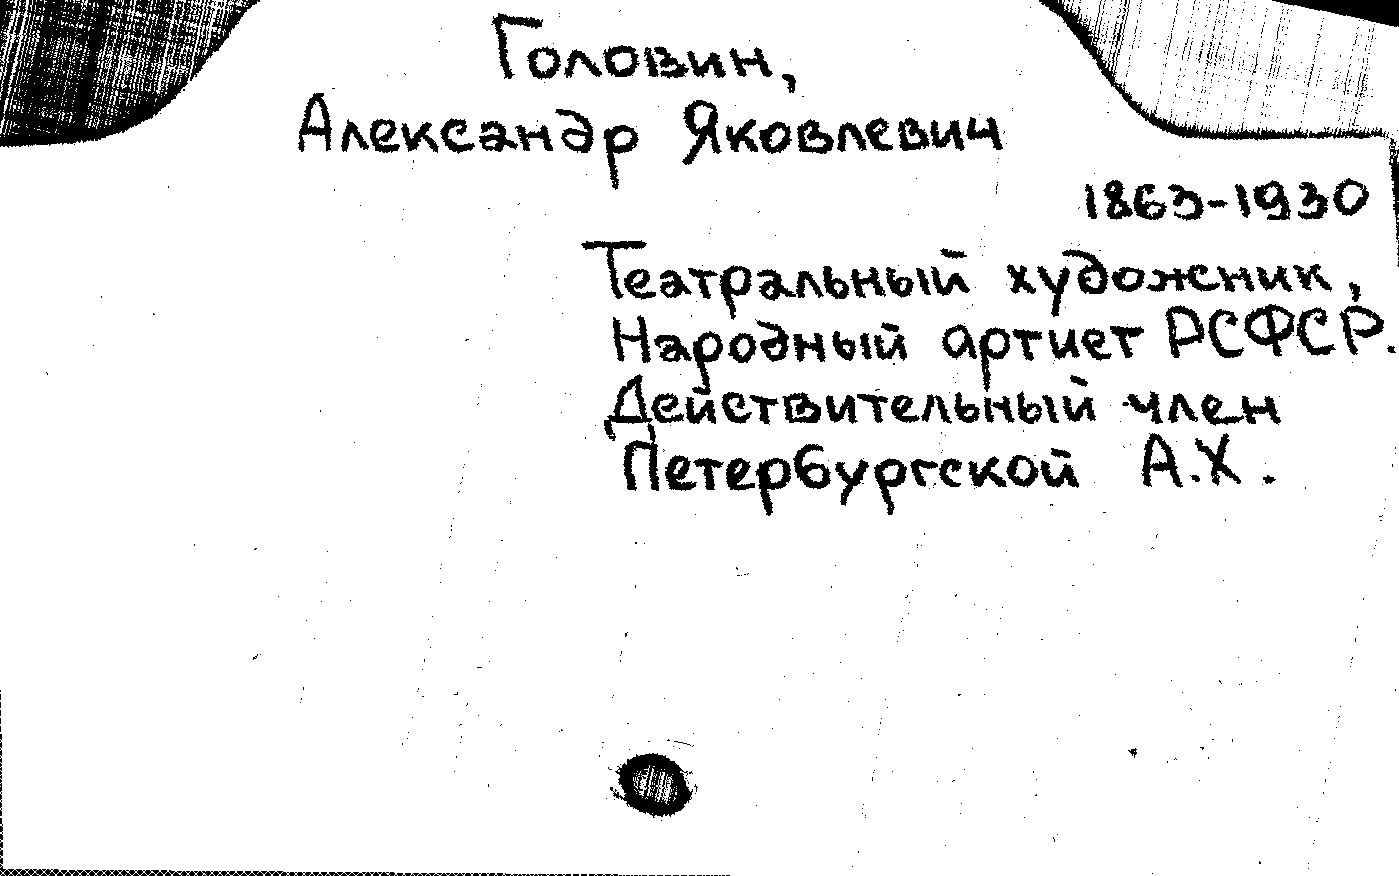 Головин,
Александр Яковлевич
1863-1930
Театральный художник,
Народный артист РСФСР.
Действительный член
Петербургской А.Х.